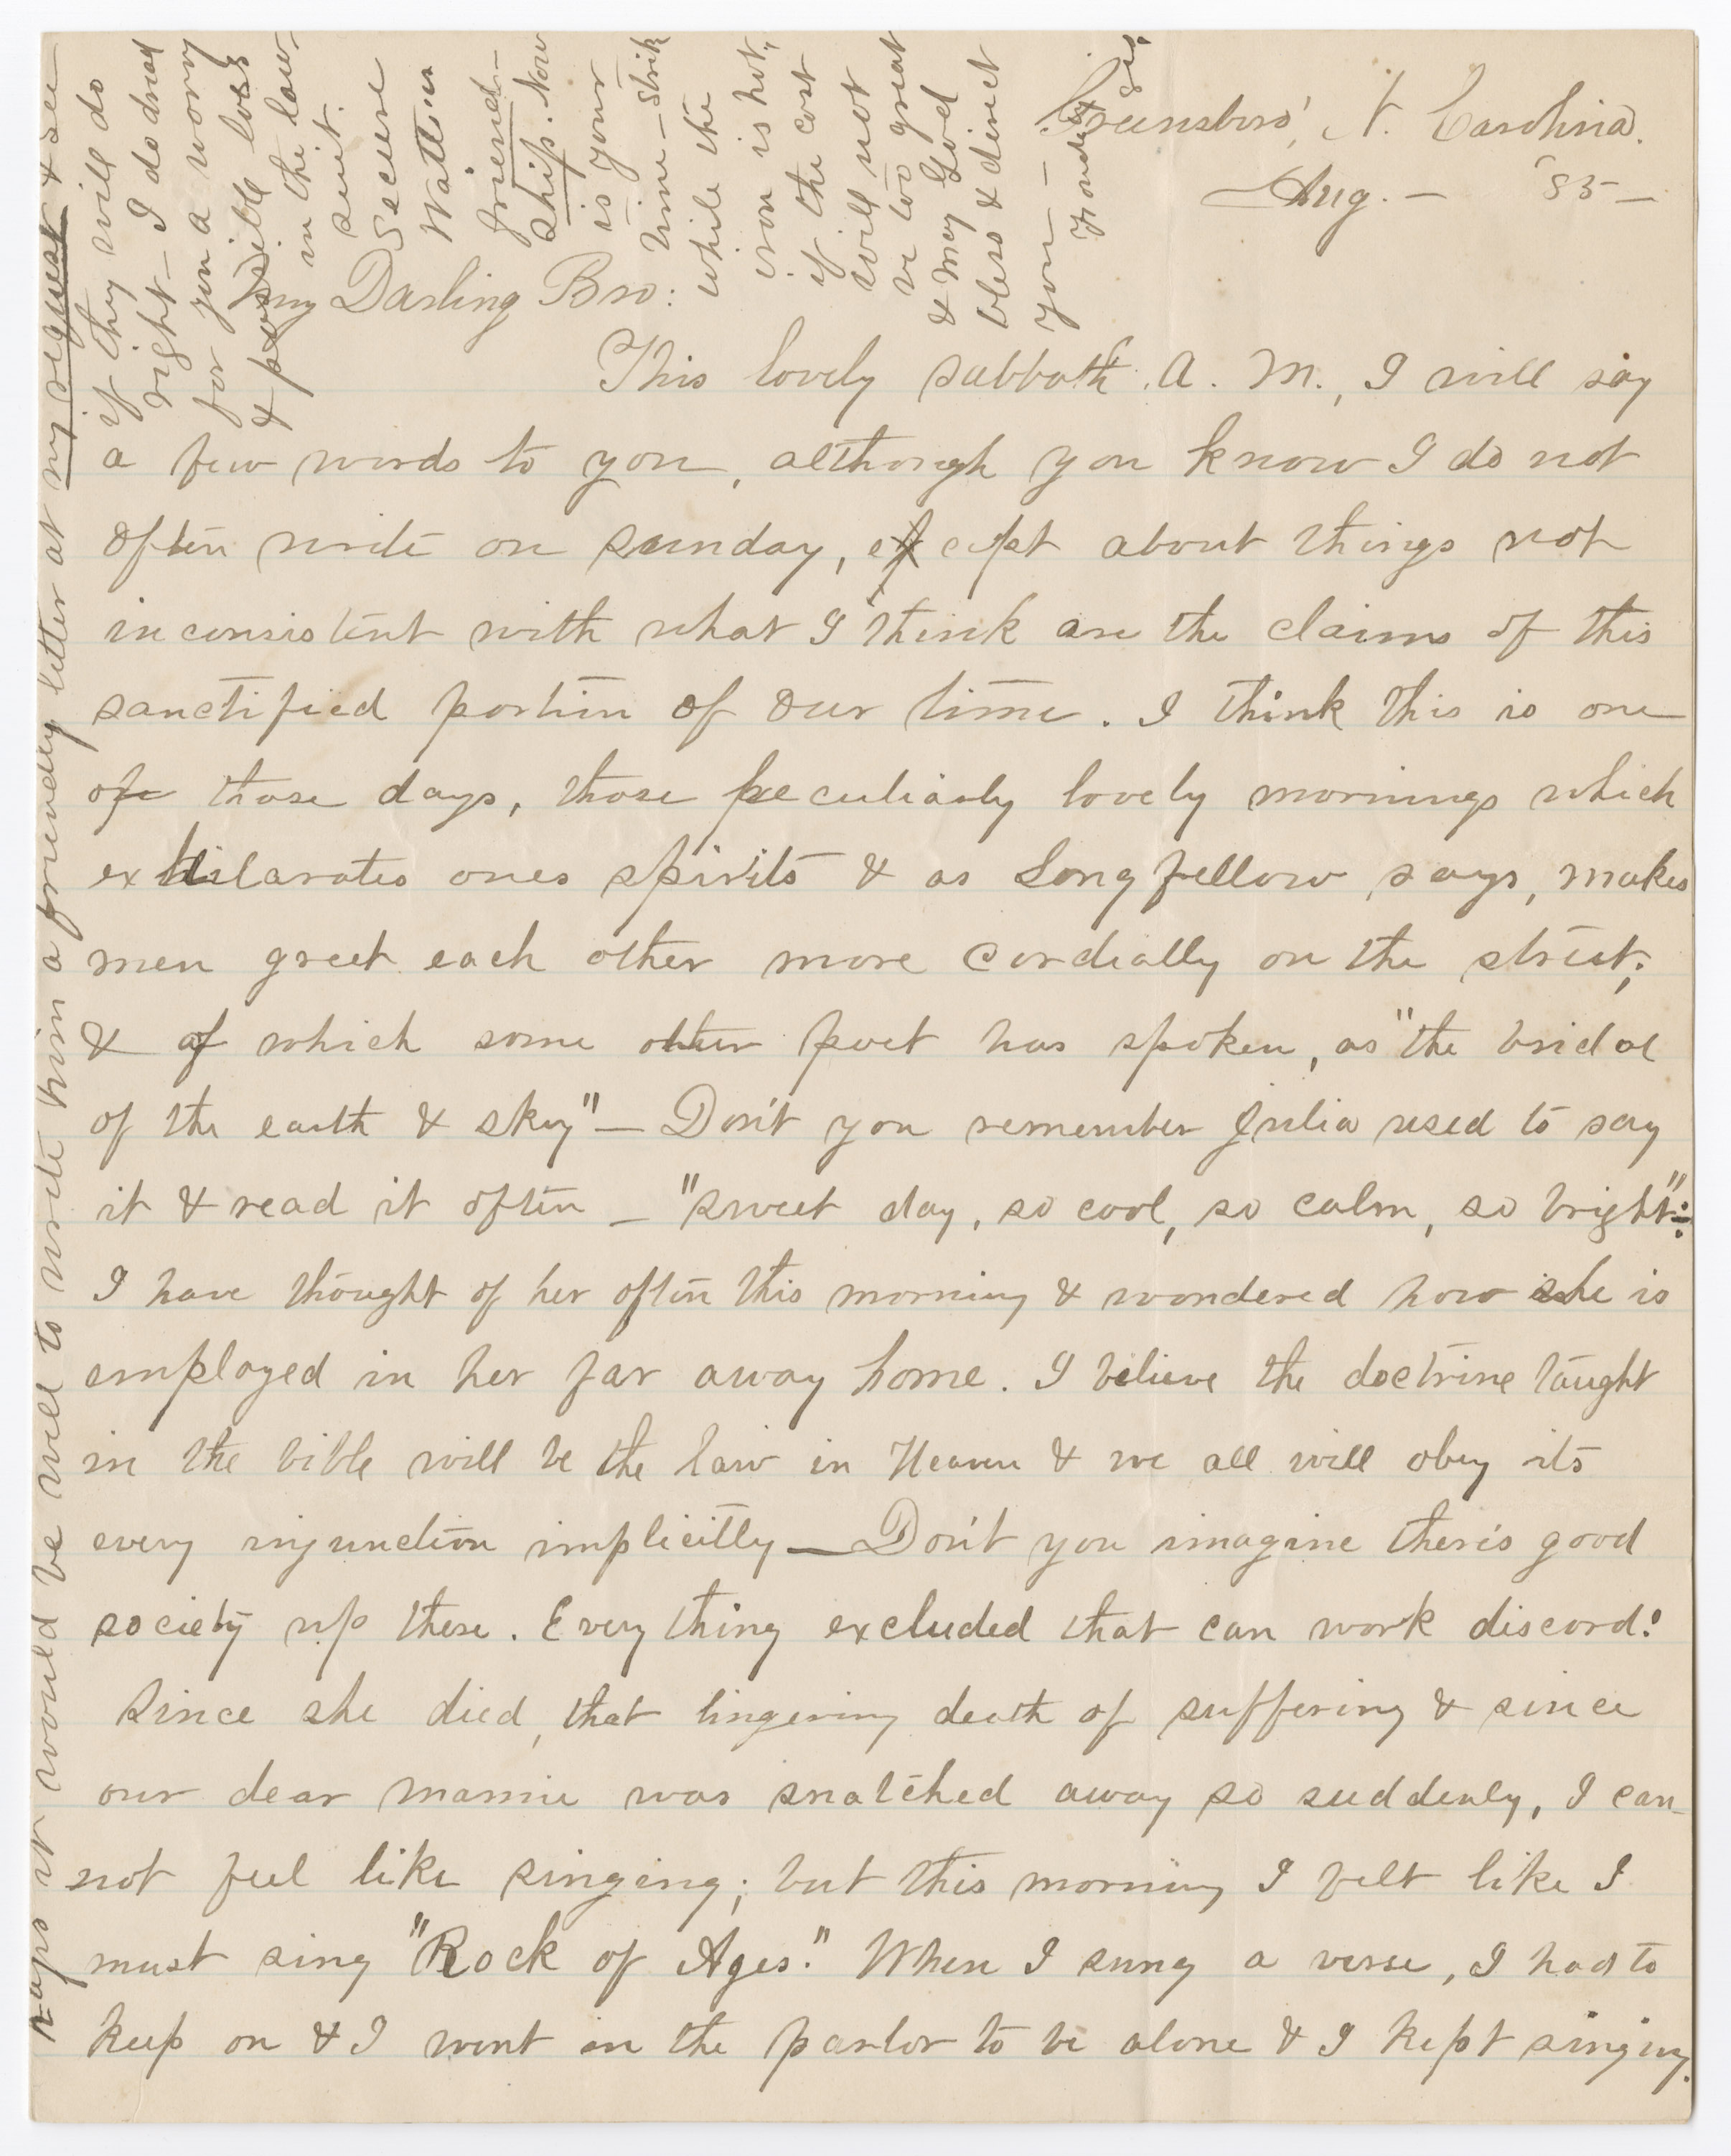 Greensboro', N. Carolina.
Aug. — '85 —
My Darling Bro:
This lovely sabbath A. M., I will say
a few words to you, although you know I do not
often write on Sunday, except about things not
inconsistent with what I think are the claims of this
sanctified portion of our time. I think this is one
of those days, those peculiarly lovely mornings which
exhilarates ones spirits & as Longfellow says, makes
men greet each other more cordially on the street;
& of which some other poet has spoken, as "the bridal
of the earth & sky" — Don't you remember Julia used to say
it & read it often — "sweet day, so cool, so calm, so bright":
I have thought of her often this morning & wondered how she is
employed in her far away home. I believe the doctrine taught
in the bible will be the law in Heaven & we all will obey its
every injunction implicitly — Don't you imagine there's good
society up there. Every thing excluded that can work discord!
Since she died, that lingering death of suffering & since
our dear mamie was snatched away so suddenly, I can-
not feel like singing; but this morning I felt like I
must sing "Rock of Ages." When I sung a verse, I had to
keep on & I went in the parlor to be alone & I kept singing.
haps it would be well to write him a friendly letter at my request & see
if they will do
right — I do dread
for you a worry
& possible loss
in the law
suit.
Secure
Watson
friend-
ship. Now
is your
time — strike
while the
iron is hot,
if the cost
will not
be too great
& may God
bless & direct
you —
Fondly Sis.